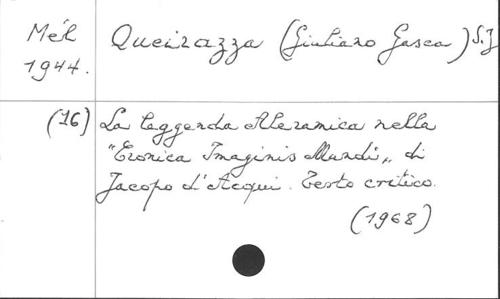 Mél
1944.
Queirazza (Giuliano Gasca) S.J
(16) La leggenda Aleramica nella
"Cronica Imaginis Mundi„ di
Jacopo d'Acqui. Testo critico.
(1968)